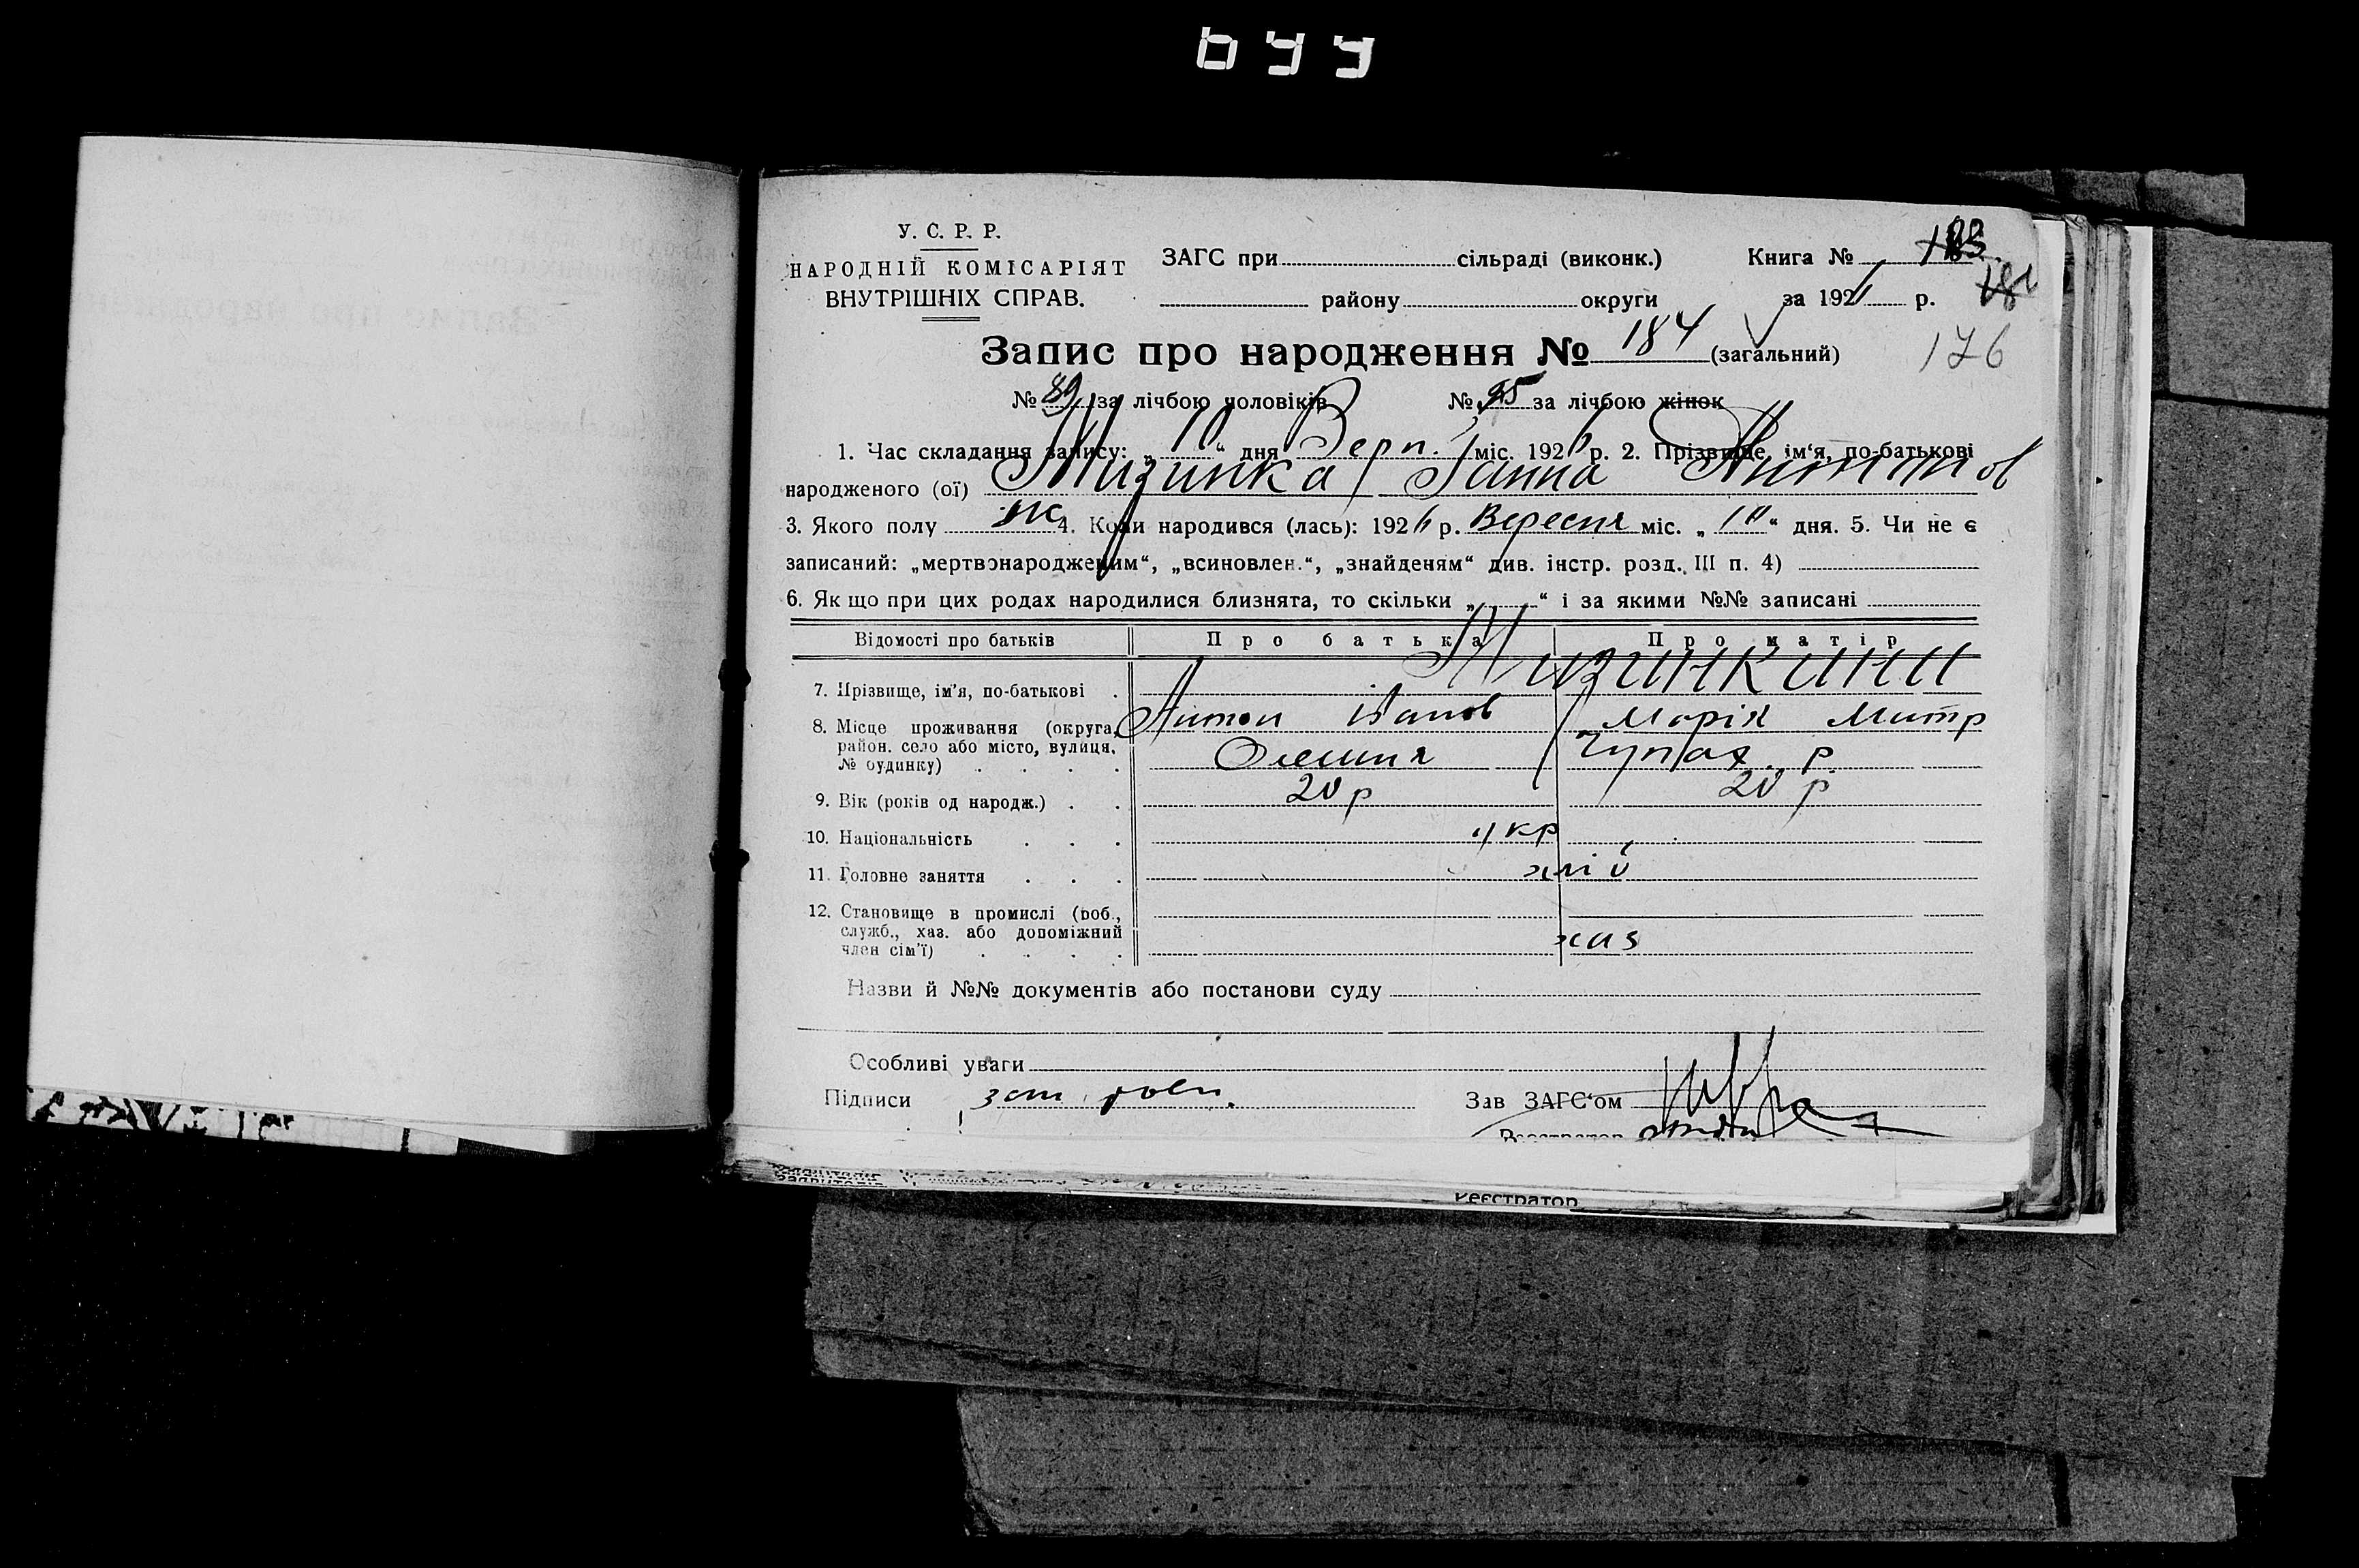 У. С. Р. Р.
НАРОДНІЙ КОМІСАРІЯТ
ВНУТРІШНІХ СПРАВ.
ЗАГС при сільраді (виконк.)
району округи
Книга №
за 1926 р.
176
Запис про народження № 184 (загальний)
№ 89 за лічбою чоловіків № 95 за лічбою жінок
1. Час складання запису: „ 10 “ дня Верп. міс. 1926 р. 2. Прізвище, ім‘я, по-батькові
народженого (ої) Мизинка Ганна Антонов
3. Якого полу ж 4. Коли народився (лась): 1926 р. Вересня міс. „ “ дня. 5. Чи не є
записаний: „мертвонародженим“, „всиновлен.“, „знайденям“ див. інстр. розд. III п. 4)
6. Як що при цих родах народилися близнята, то скільки „ “ і за якими №№ записані
Відомості про батьків Про батька Про матір
7. Прізвище, ім’я, по-батькові Мизинкини
Антон Іванов Марія Митр
8. Місце проживання (округа, район, село або місто, вулиця, № будинку) Олешня Чупах. р.
9. Вік (років од народж.) 20 р 20 р
10. Національність укр
11. Головне заняття хліб
12. Становище в промислі (роб., служб., хаз. або допоміжний член сім’ї) хаз
Назви й №№ документів або постанови суду
Особливі уваги
Підписи
Зав ЗАГС‘ом
Реєстратор
Реєстратор